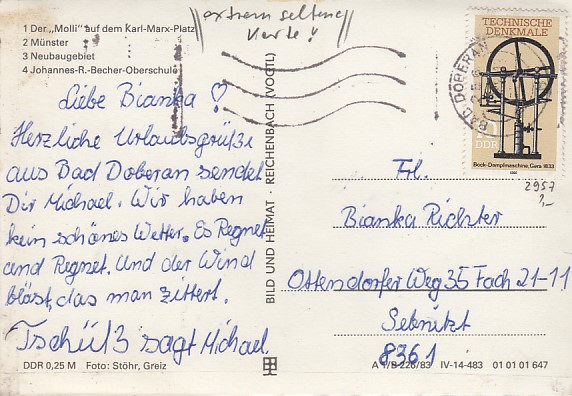 extrem seltene
Karte!
1 Der „Molli" auf dem Karl-Marx-Platz
2 Münster
3 Neubaugebiet
4 Johannes-R.-Becher-Oberschule
Liebe Bianka!
Herzliche Urlaubsgrüße
aus Bad Doberan sendet
Dir Michael. Wir haben
kein schönes Wetter. Es Regnet
und Regnet. Und der Wind
bläst, das man zittert.
Tschüß sagt Michael.
DDR 0,25 M Foto: Stöhr, Greiz
BILD UND HEIMAT · REICHENBACH (VOGTL)
TECHNISCHE
DENKMALE
10
DDR
Bock-Dampfmaschine, Gera 1833
BAD DOBERAN
2957
1,-
Frl.
Bianka Richter
Ottendorfer Weg 35 Fach 21-11
Sebnitzt
8361
A 1/B 226/83 IV-14-483 01 01 01 647